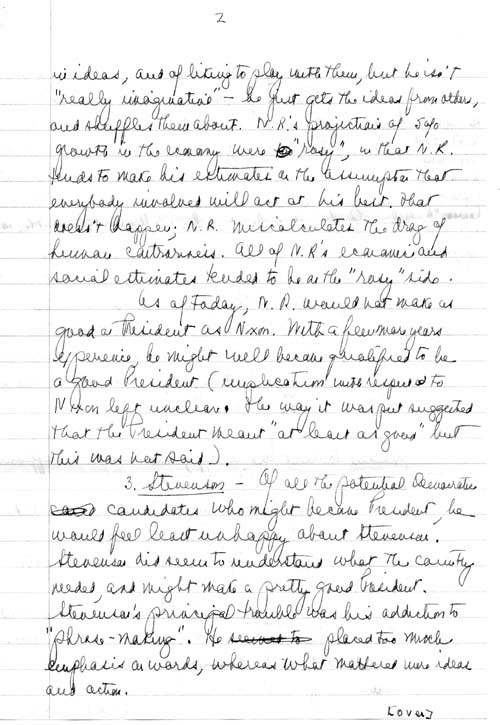 2
in ideas, and of liking to play with them, but he isn't
"really imaginative" – he just gets the ideas from others,
and shuffles them about. N.R.'s projections of 5%
growth in the economy were "rosy", in that N.R.
tends to make his estimates on the assumption that
everybody involved will act at his best. That
doesn't happen; N.R. miscalculates the drag of
human contrariness. All of N.R.'s economic and
social estimates tended to be on the "rosy" side.
As of today, N.R. would not make as
good a President as Nixon. With a few more years
experience, he might well become qualified to be
a good President (implication with respect to
Nixon left unclear. The way it was put suggested
that the President meant "at least as good" but
this was not said).
3. Stevenson – Of all the potential Democratic
candidates who might become President, he
would feel least unhappy about Stevenson.
Stevenson did seem to understand what the country
needed, and might make a pretty good President.
Stevenson's principal trouble was his addiction to
"phrase-making". He seemed to placed too much
emphasis on words, whereas what mattered were ideas
and action.
[over]